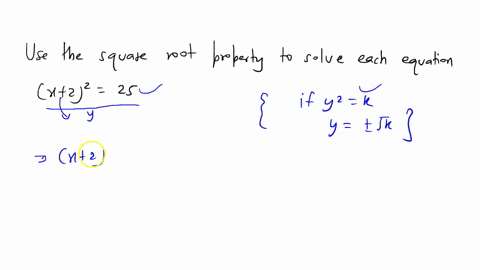 Use the square root property to solve each equation
(x+2)² = 25 ✓
y
{ if y² = k
y = ±√k }
⇒ (x+2)